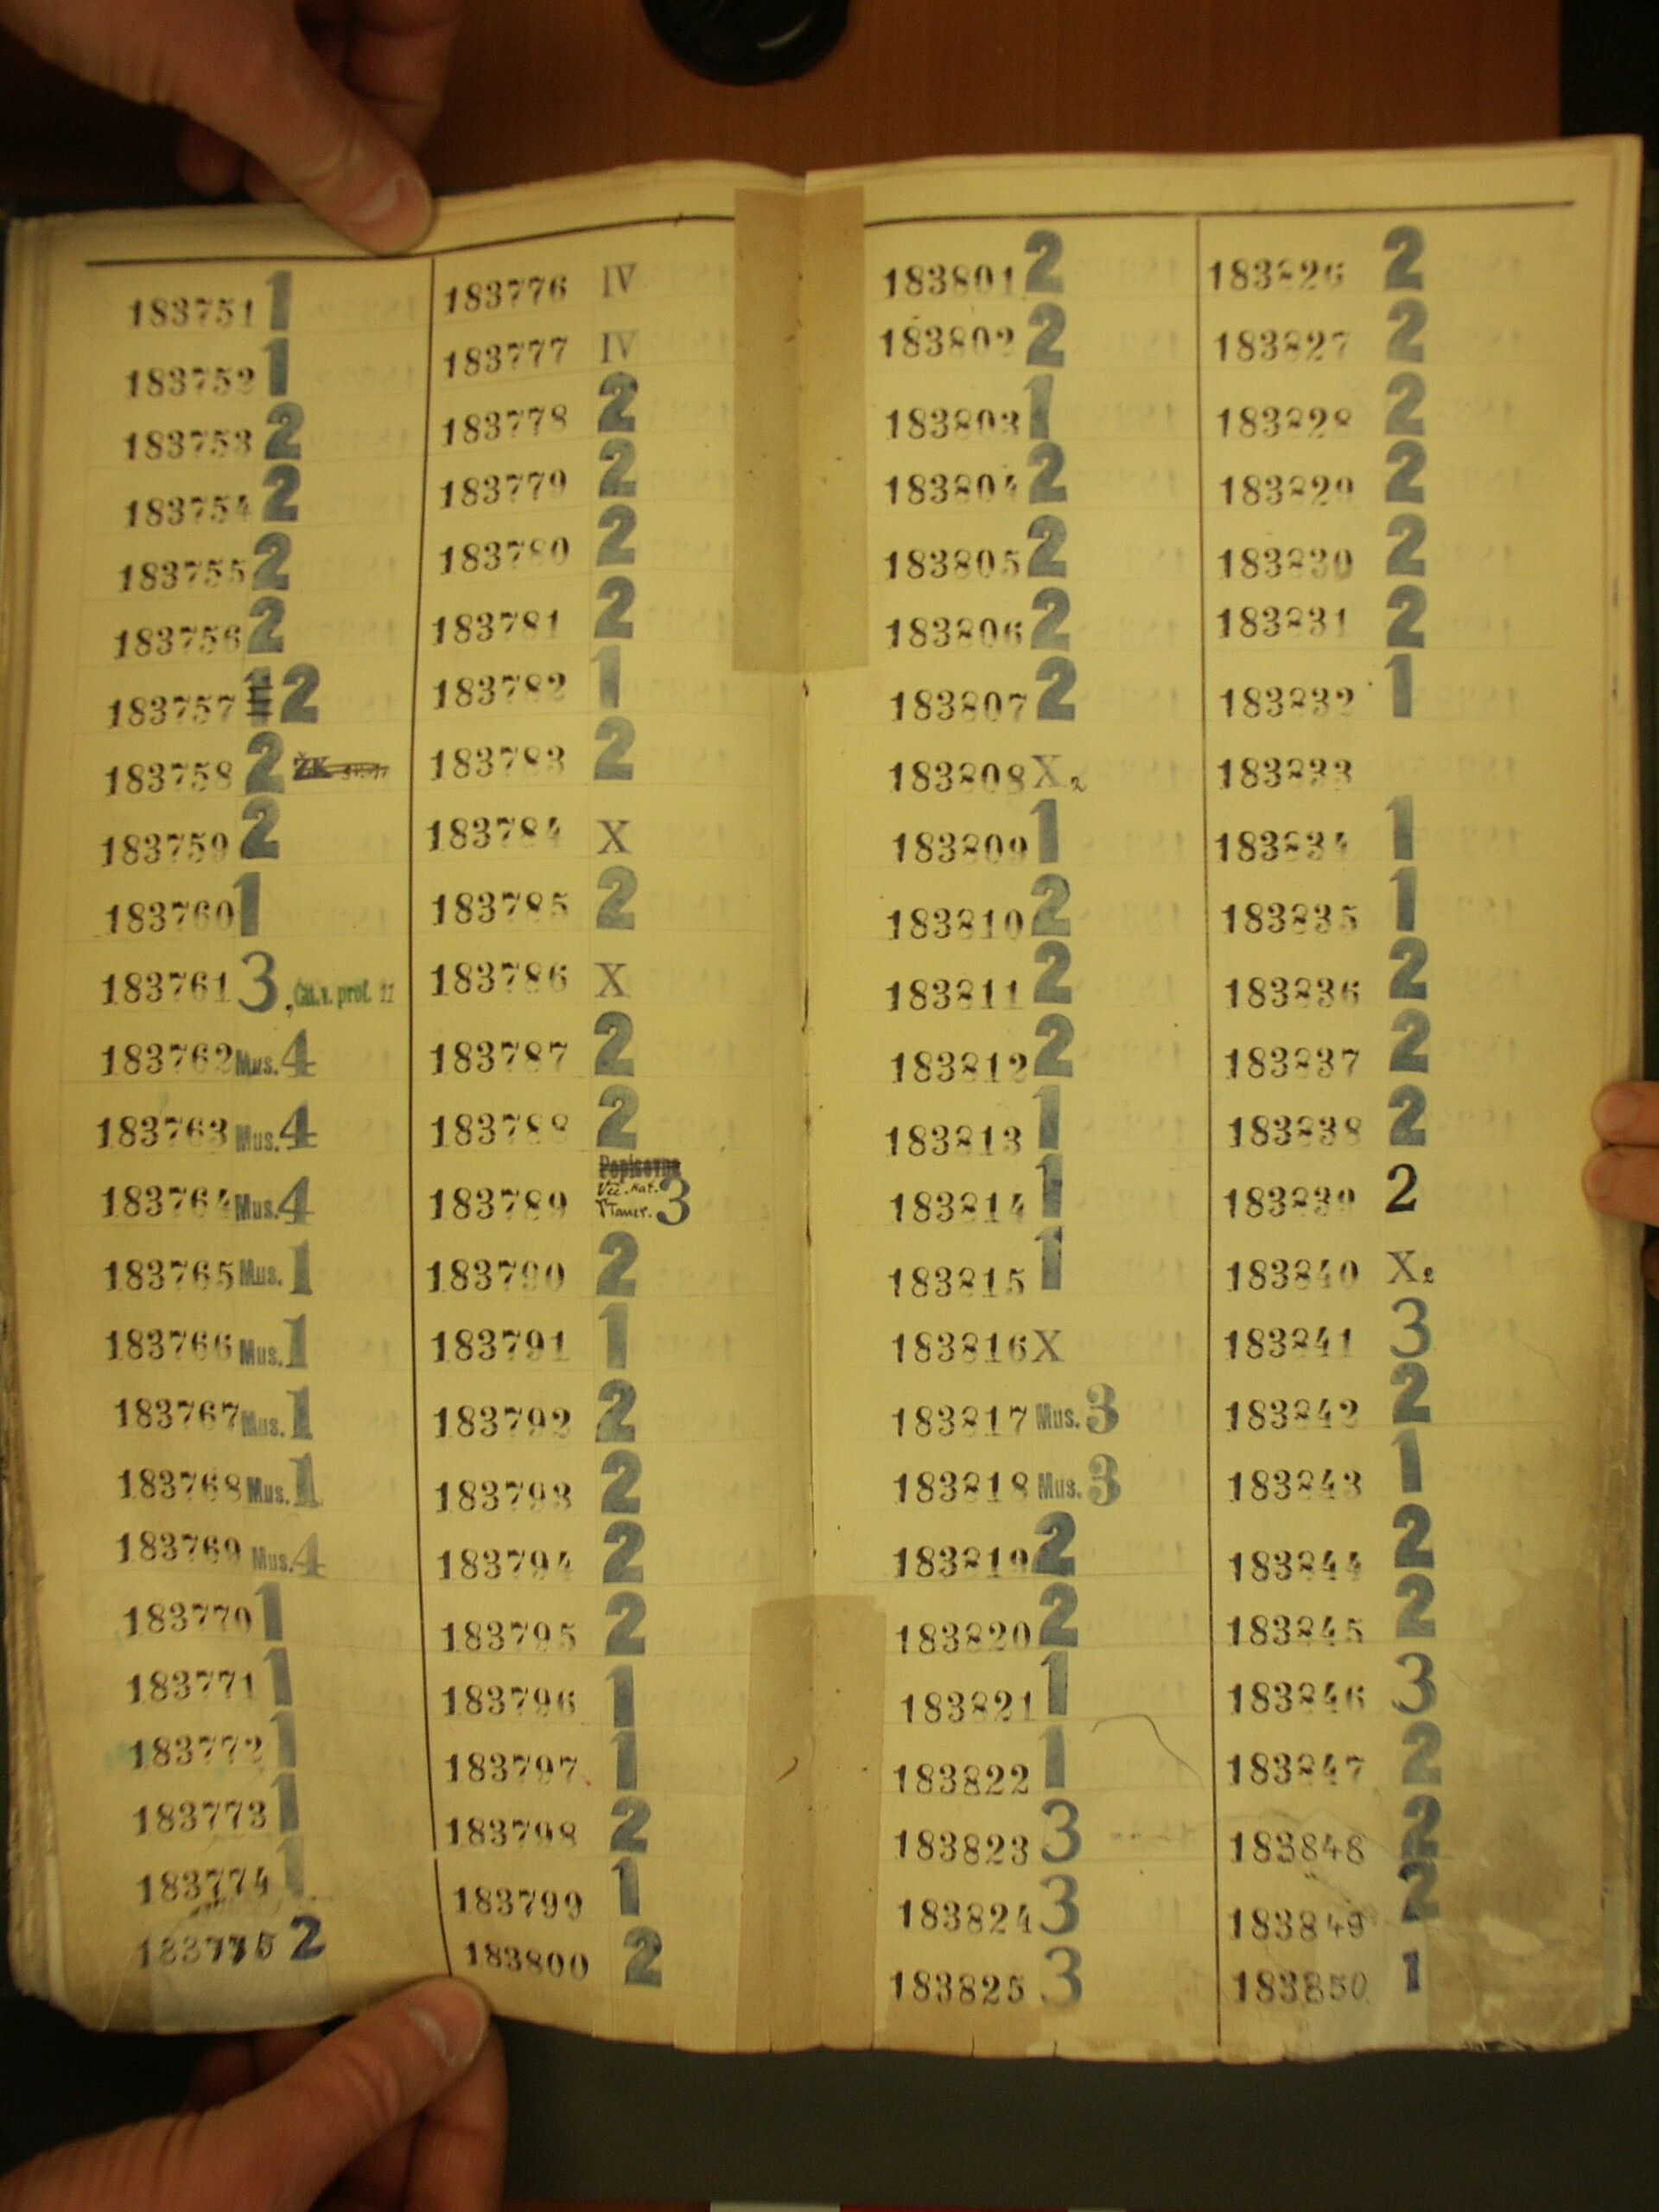 183751 1
183752 1
183753 2
183754 2
183755 2
183756 2
183757 1 2
183758 2 ŽK
183759 2
183760 1
183761 3, Čít. v. prof. 11
183762 Mus. 4
183763 Mus. 4
183764 Mus. 4
183765 Mus. 1
183766 Mus. 1
183767 Mus. 1
183768 Mus. 1
183769 Mus. 4
183770 1
183771 1
183772 1
183773 1
183774 1
183775 2
183776 IV
183777 IV
183778 2
183779 2
183780 2
183781 2
183782 1
183783 2
183784 X
183785 2
183786 X
183787 2
183788 2
Popisovna
183789 3
183790 2
183791 1
183792 2
183793 2
183794 2
183795 2
183796 1
183797 1
183798 2
183799 1
183800 2
183801 2
183802 2
183803 1
183804 2
183805 2
183806 2
183807 2
183808 X2
183809 1
183810 2
183811 2
183812 2
183813 1
183814 1
183815 1
183816 X
183817 Mus. 3
183818 Mus. 3
183819 2
183820 2
183821 1
183822 1
183823 3
183824 3
183825 3
183826 2
183827 2
183828 2
183829 2
183830 2
183831 2
183832 1
183833
183834 1
183835 1
183836 2
183837 2
183838 2
183839 2
183840 X2
183841 3
183842 2
183843 1
183844 2
183845 2
183846 3
183847 2
183848 2
183849 2
183850 1